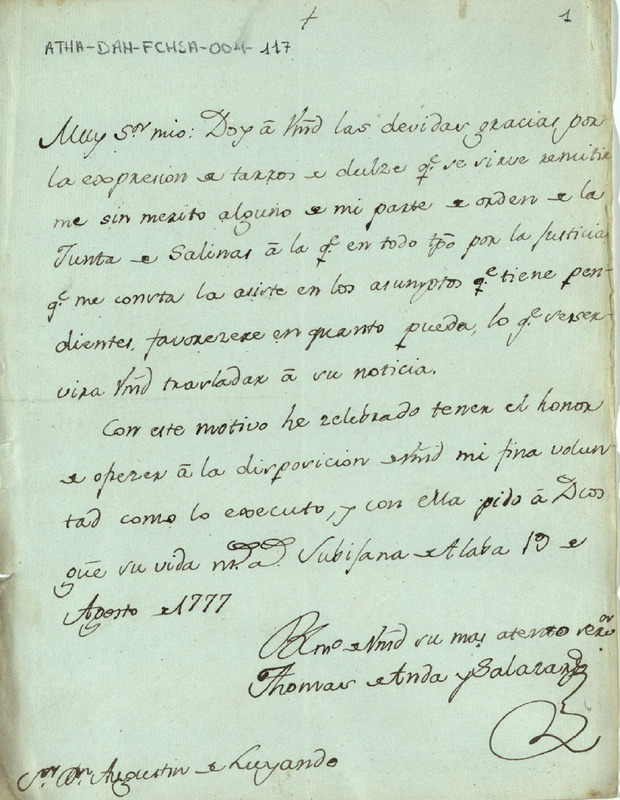 + 1
ATHA-DAH-FCHSA-004-117
Muy Sor mio: Doy â Vmd las devidas gracias por
la expresion de tarros de dulze qe se sirve remitir
me sin merito alguno de mi parte de orden de la
Junta de Salinas â la qe en todo tpo por la justicia
qe me consta la asiste en los asunptos qe tiene pen-
dientes, favorezere en quanto pueda, lo qe se ser-
vira Vmd trasladar â su noticia.
Con este motivo he zelebrado tener el honor
de ofrezer â la disposicion de Vmd mi fina volun-
tad como lo executo, y con ella pido â Dios
gũe su vida ms as Subijana de Alaba 19 de
Agosto de 1777
BLmo de Vmd su mas atento seror
Thomas de Anda y Salazar
Sor Dn Augustin de Luyando